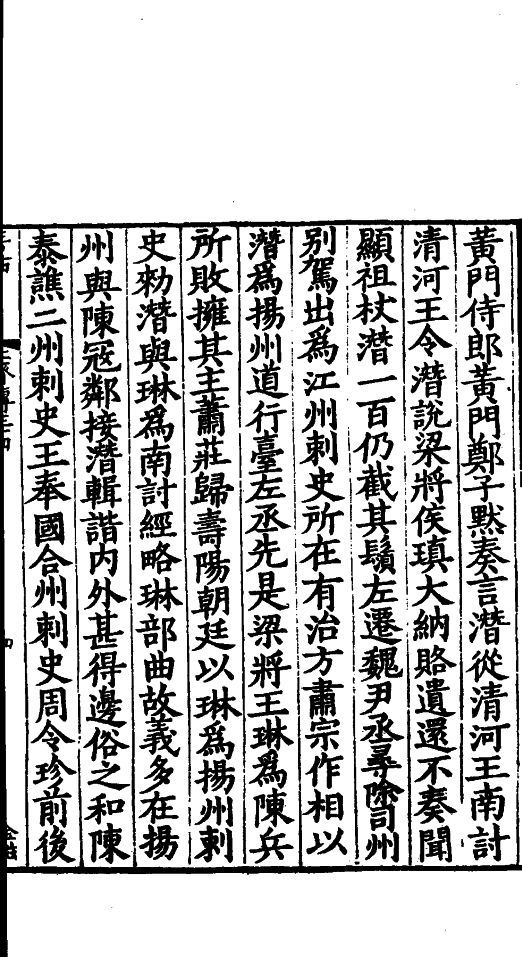 黃門侍郎黃門鄭子默奏言潛從清河王南討
清河王令潛說梁將侯瑱大納賂遺還不奏聞
顯祖杖潛一百仍截其鬚左遷魏尹丞尋除司州
別駕出爲江州刺史所在有治方肅宗作相以
潛爲揚州道行臺左丞先是梁將王琳爲陳兵
所敗擁其主蕭莊歸壽陽朝廷以琳爲揚州刺
史勑潛與琳爲南討經略琳部曲故義多在揚
州與陳寇鄰接潛輯諧內外甚得邊俗之和陳
秦譙二州刺史王奉國合州刺史周令珍前後